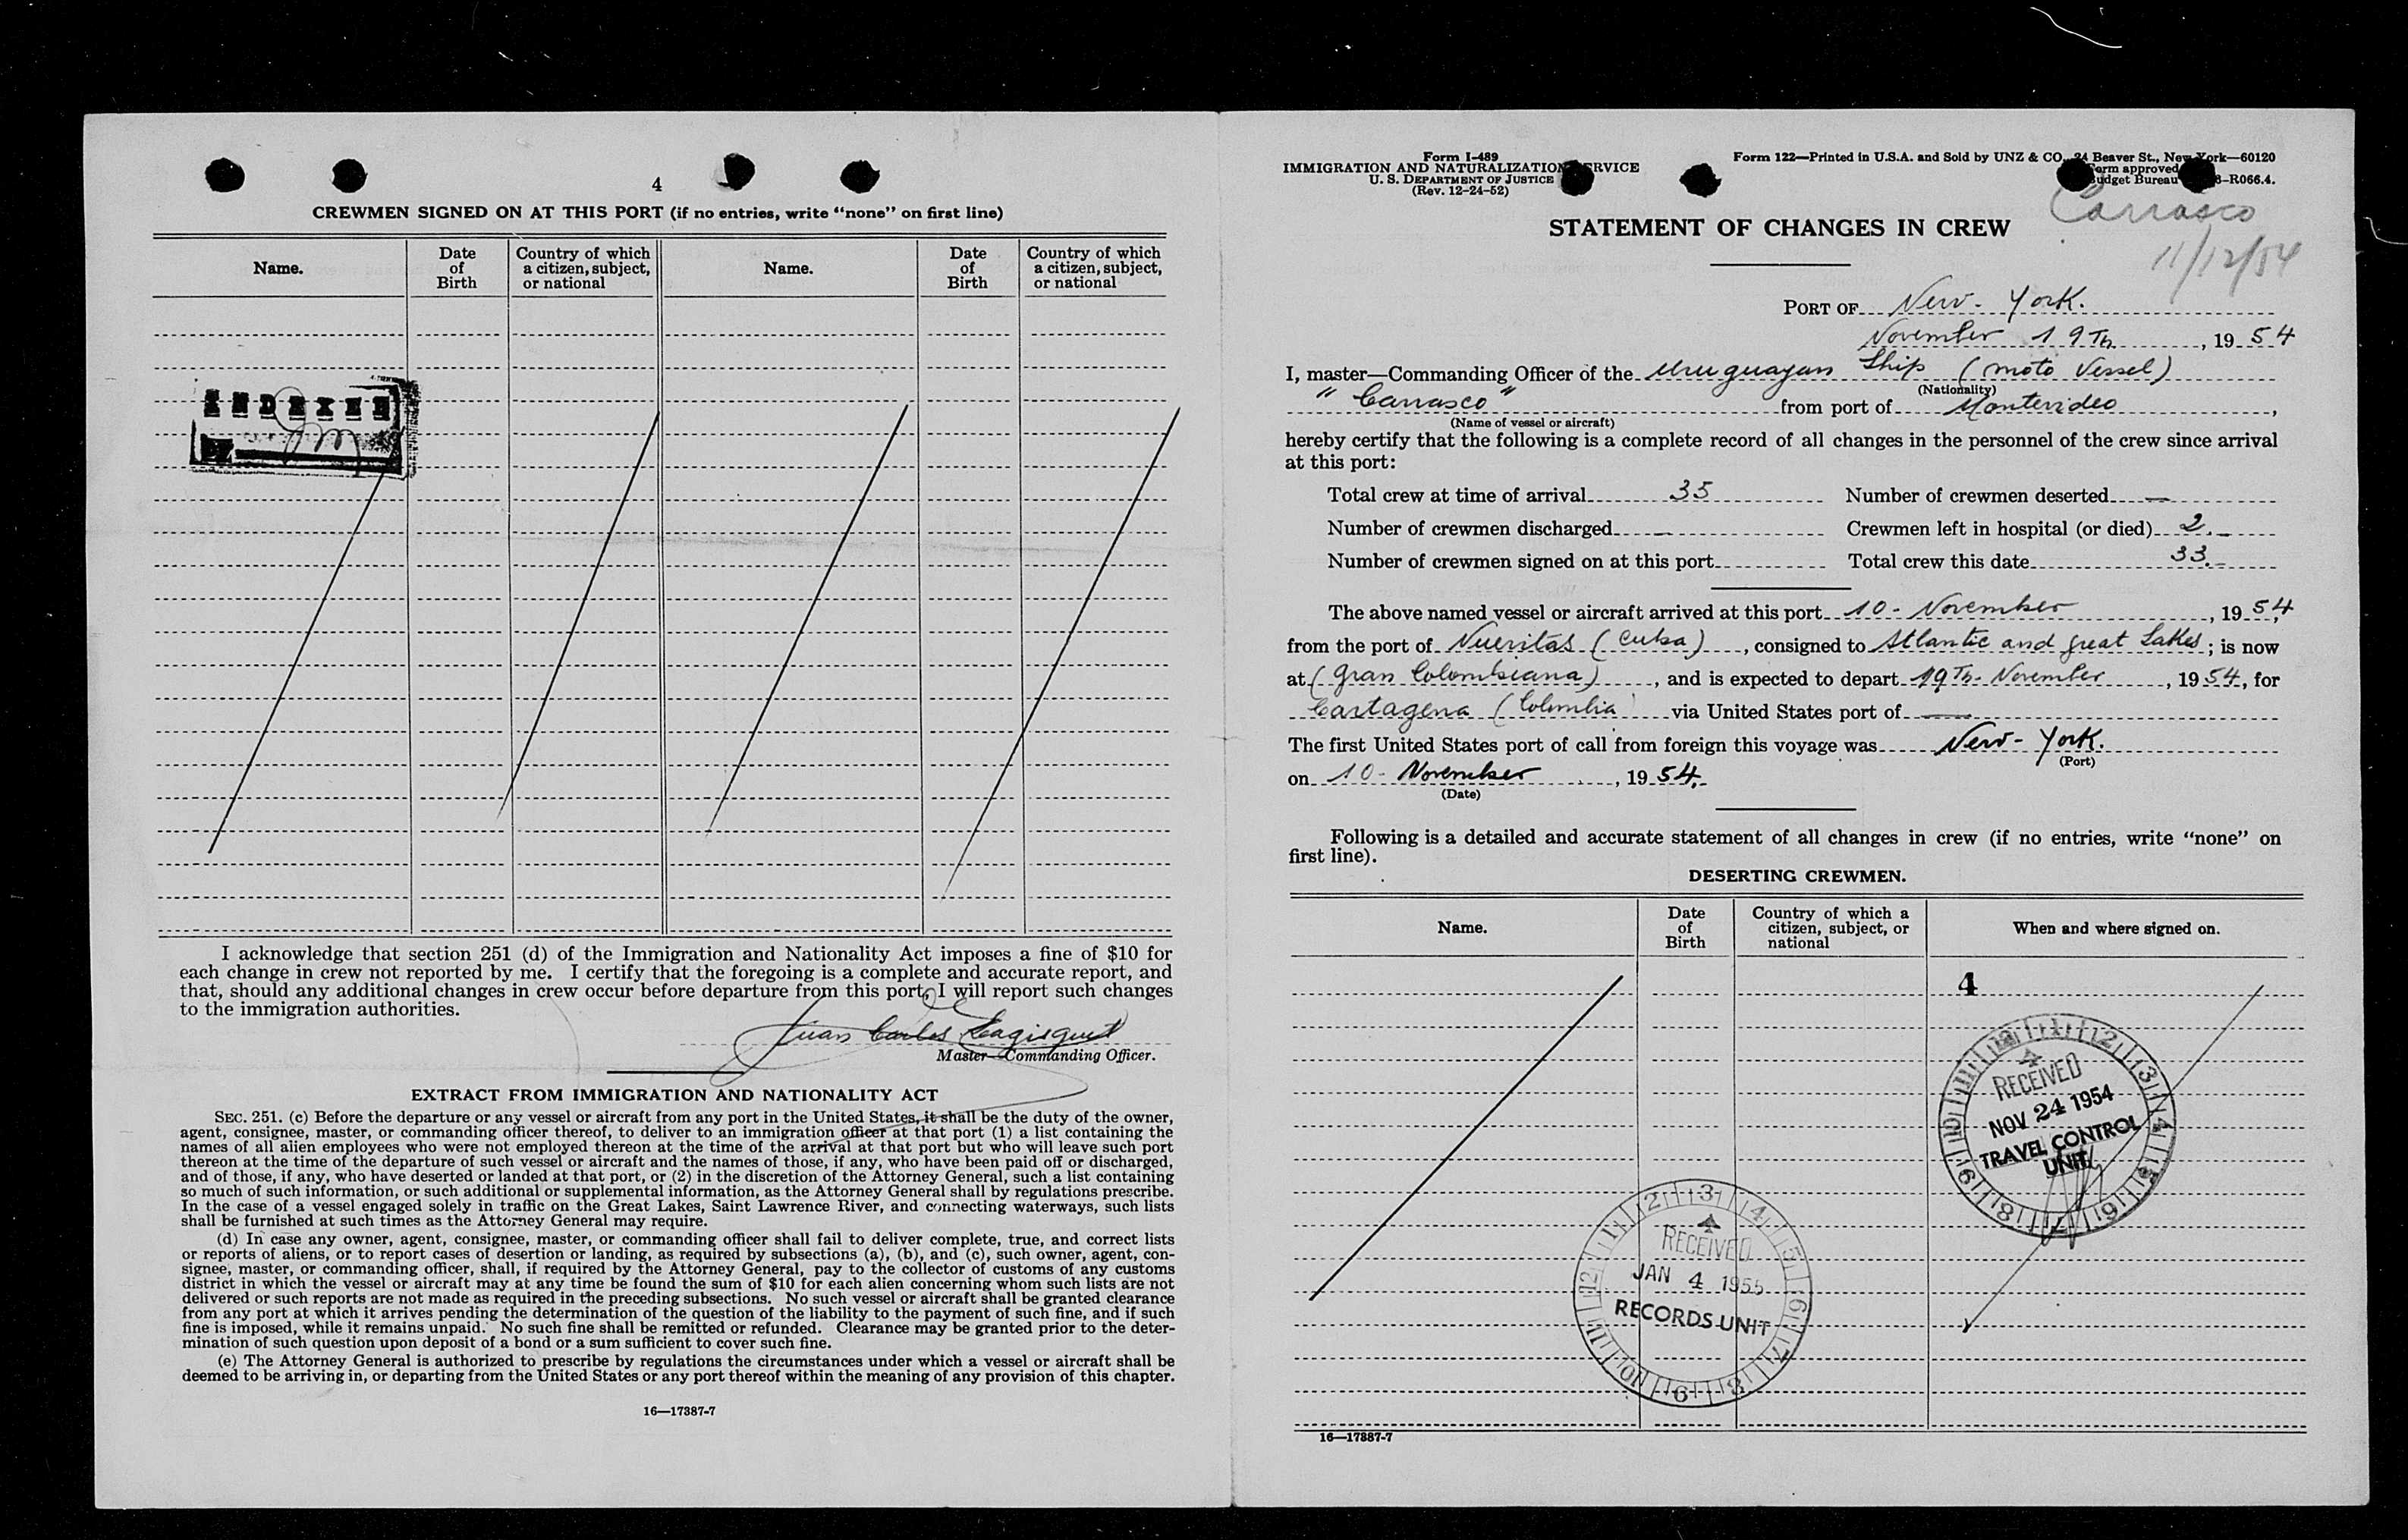 4
CREWMEN SIGNED ON AT THIS PORT (if no entries, write “none” on first line)
Name.
Date of Birth
Country of which a citizen, subject, or national
Name.
Date of Birth
Country of which a citizen, subject, or national
INDEXED
I acknowledge that section 251 (d) of the Immigration and Nationality Act imposes a fine of $10 for
each change in crew not reported by me. I certify that the foregoing is a complete and accurate report, and
that, should any additional changes in crew occur before departure from this port, I will report such changes
to the immigration authorities.
Juan Carlos
Master—Commanding Officer.
EXTRACT FROM IMMIGRATION AND NATIONALITY ACT
SEC. 251. (c) Before the departure or any vessel or aircraft from any port in the United States, it shall be the duty of the owner,
agent, consignee, master, or commanding officer thereof, to deliver to an immigration officer at that port (1) a list containing the
names of all alien employees who were not employed thereon at the time of the arrival at that port but who will leave such port
thereon at the time of the departure of such vessel or aircraft and the names of those, if any, who have been paid off or discharged,
and of those, if any, who have deserted or landed at that port, or (2) in the discretion of the Attorney General, such a list containing
so much of such information, or such additional or supplemental information, as the Attorney General shall by regulations prescribe.
In the case of a vessel engaged solely in traffic on the Great Lakes, Saint Lawrence River, and connecting waterways, such lists
shall be furnished at such times as the Attorney General may require.
(d) In case any owner, agent, consignee, master, or commanding officer shall fail to deliver complete, true, and correct lists
or reports of aliens, or to report cases of desertion or landing, as required by subsections (a), (b), and (c), such owner, agent, con-
signee, master, or commanding officer, shall, if required by the Attorney General, pay to the collector of customs of any customs
district in which the vessel or aircraft may at any time be found the sum of $10 for each alien concerning whom such lists are not
delivered or such reports are not made as required in the preceding subsections. No such vessel or aircraft shall be granted clearance
from any port at which it arrives pending the determination of the question of the liability to the payment of such fine, and if such
fine is imposed, while it remains unpaid. No such fine shall be remitted or refunded. Clearance may be granted prior to the deter-
mination of such question upon deposit of a bond or a sum sufficient to cover such fine.
(e) The Attorney General is authorized to prescribe by regulations the circumstances under which a vessel or aircraft shall be
deemed to be arriving in, or departing from the United States or any port thereof within the meaning of any provision of this chapter.
16—17387-7
Form I-489
IMMIGRATION AND NATURALIZATION SERVICE
U. S. DEPARTMENT OF JUSTICE
(Rev. 12-24-52)
Form 122—Printed in U.S.A. and Sold by UNZ & CO., 24 Beaver St., New York—60120
Form approved
Budget Bureau -R066.4.
Carrasco
11/12/54
STATEMENT OF CHANGES IN CREW
PORT OF New-York.
November 19Th, 1954
I, master—Commanding Officer of the Uruguayan Ship (moto Vessel)
(Nationality)
"Carrasco" from port of Montevideo,
(Name of vessel or aircraft)
hereby certify that the following is a complete record of all changes in the personnel of the crew since arrival
at this port:
Total crew at time of arrival 35 Number of crewmen deserted —
Number of crewmen discharged — Crewmen left in hospital (or died) 2.-
Number of crewmen signed on at this port Total crew this date 33.-
The above named vessel or aircraft arrived at this port 10- November, 1954
from the port of Nueritas (Cuba), consigned to Atlantic and great Lakes; is now
at (Gran Colombiana), and is expected to depart 19Th- November, 1954, for
Cartagena (Colombia via United States port of —
The first United States port of call from foreign this voyage was New-York.
(Port)
on 10- November, 1954.-
(Date)
Following is a detailed and accurate statement of all changes in crew (if no entries, write “none” on
first line).
DESERTING CREWMEN.
Name.
Date of Birth
Country of which a citizen, subject, or national
When and where signed on.
4
RECEIVED
NOV 24 1954
TRAVEL CONTROL
UNIT
RECEIVED
JAN 4 1955
RECORDS UNIT
16—17387-7